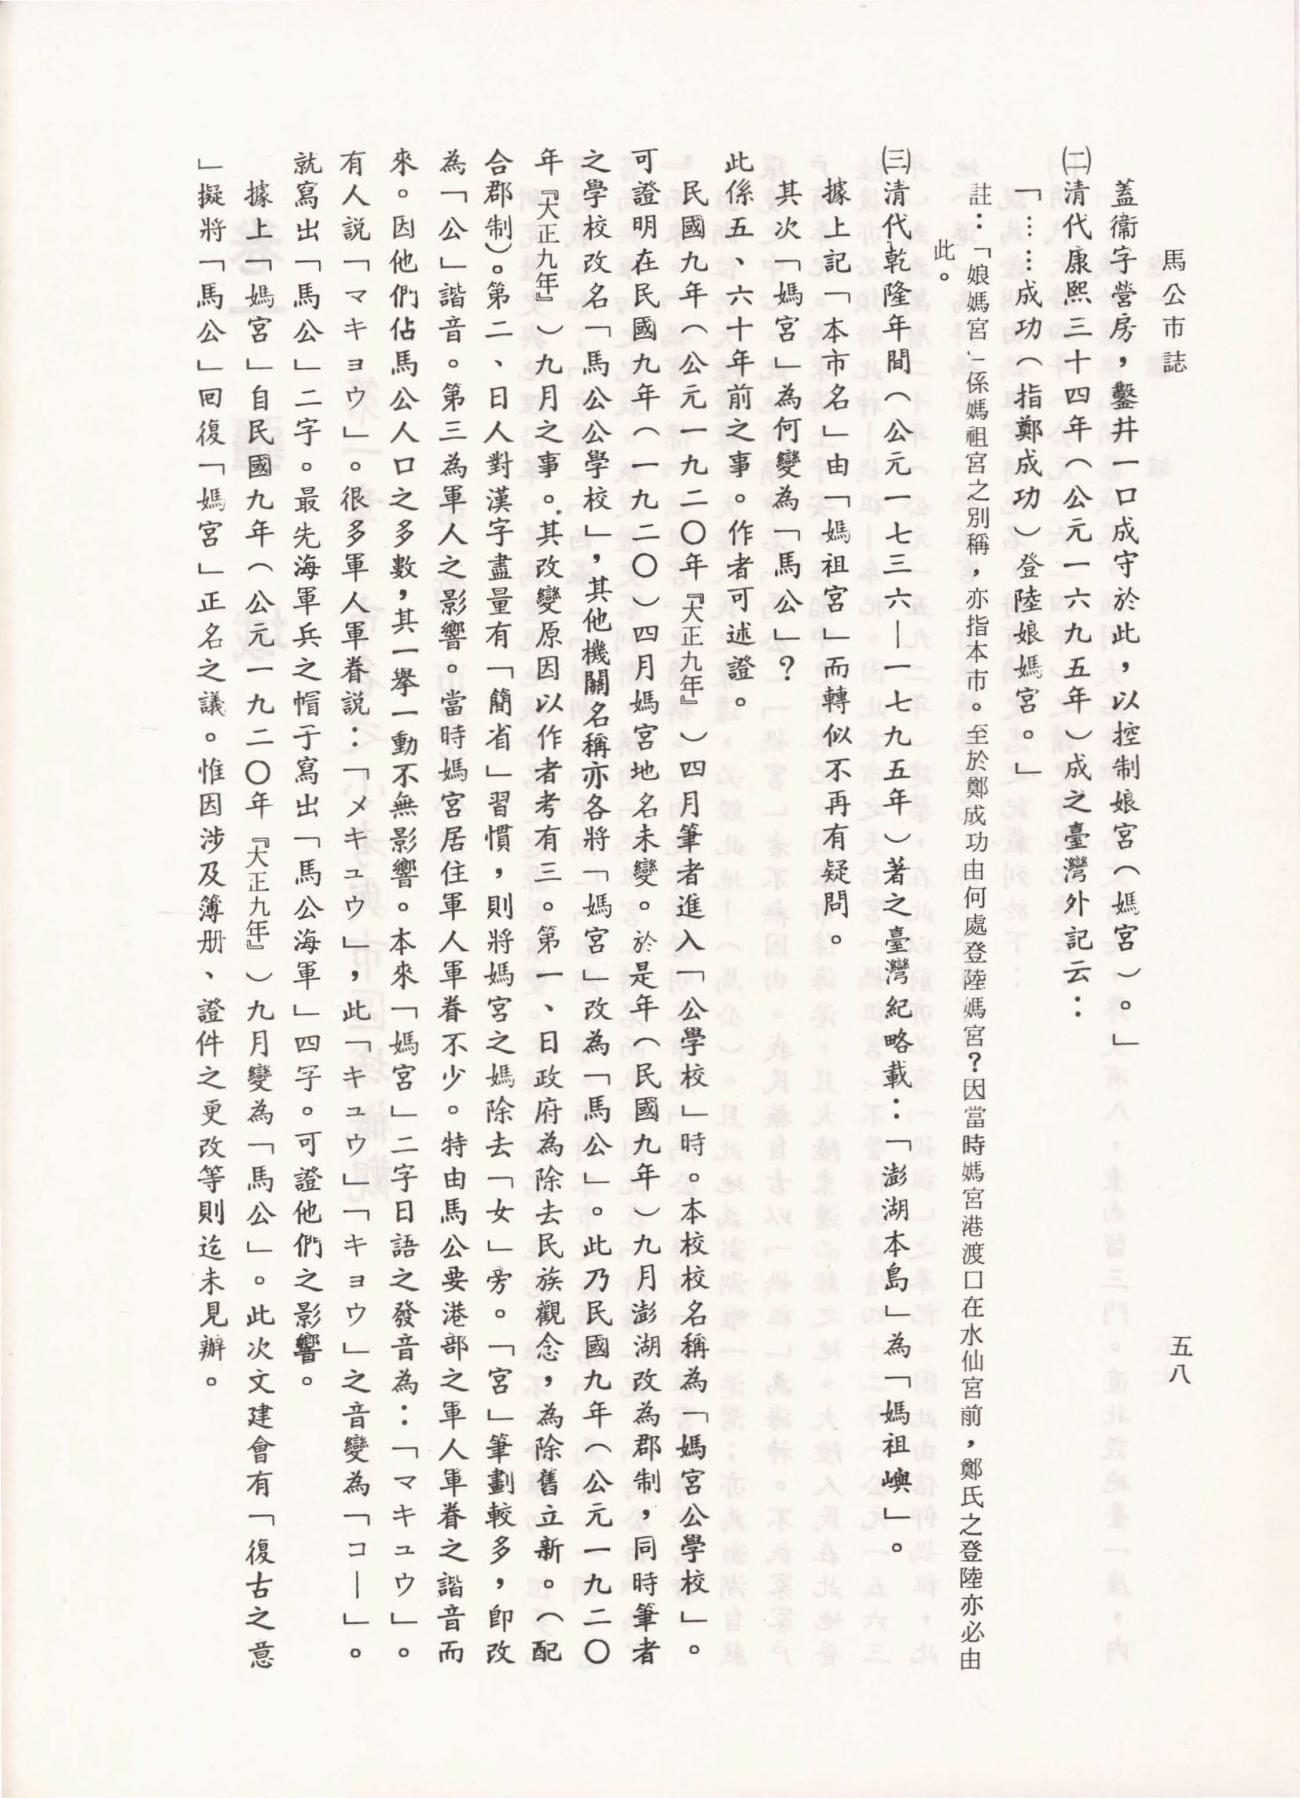 馬公市誌
五八
蓋衞字營房，鑿井一口成守於此，以控制娘宮（媽宮）。」
㈡清代康熙三十四年（公元一六九五年）成之臺灣外記云：
「……成功（指鄭成功）登陸娘媽宮。」
註：「娘媽宮」係媽祖宮之別稱，亦指本市。至於鄭成功由何處登陸媽宮？因當時媽宮港渡口在水仙宮前，鄭氏之登陸亦必由
此。
㈢清代乾隆年間（公元一七三六—一七九五年）著之臺灣紀略載：「澎湖本島」為「媽祖嶼」。
據上記「本市名」由「媽祖宮」而轉似不再有疑問。
其次「媽宮」為何變為「馬公」？
此係五、六十年前之事。作者可述證。
民國九年（公元一九二〇年『大正九年』）四月筆者進入「公學校」時。本校校名稱為「媽宮公學校」。
可證明在民國九年（一九二〇）四月媽宮地名未變。於是年（民國九年）九月澎湖改為郡制，同時筆者
之學校改名「馬公公學校」，其他機關名稱亦各將「媽宮」改為「馬公」。此乃民國九年（公元一九二〇
年『大正九年』）九月之事。其改變原因以作者考有三。第一、日政府為除去民族觀念，為除舊立新。（配
合郡制）。第二、日人對漢字盡量有「簡省」習慣，則將媽宮之媽除去「女」旁。「宮」筆劃較多，即改
為「公」諧音。第三為軍人之影響。當時媽宮居住軍人軍眷不少。特由馬公要港部之軍人軍眷之諧音而
來。因他們佔馬公人口之多數，其一擧一動不無影響。本來「媽宮」二字日語之發音為：「マキュウ」。
有人說「マキョウ」。很多軍人軍眷說：「メキュウ」，此「キュウ」「キョウ」之音變為「コ—」。
就寫出「馬公」二字。最先海軍兵之帽子寫出「馬公海軍」四字。可證他們之影響。
據上「媽宮」自民國九年（公元一九二〇年『大正九年』）九月變為「馬公」。此次文建會有「復古之意
」擬將「馬公」回復「媽宮」正名之議。惟因涉及簿册、證件之更改等則迄未見辦。